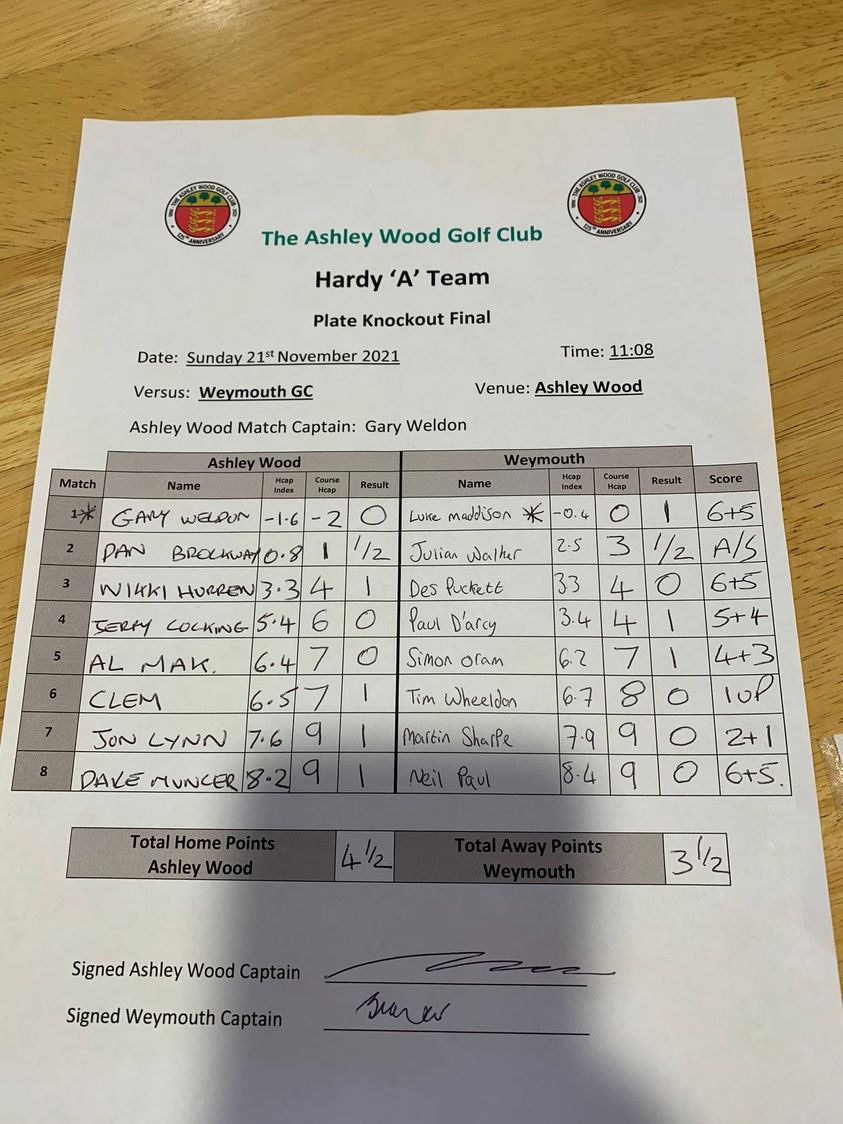 THE ASHLEY WOOD GOLF CLUB
125TH ANNIVERSARY
THE ASHLEY WOOD GOLF CLUB
125TH ANNIVERSARY
The Ashley Wood Golf Club
Hardy ‘A’ Team
Plate Knockout Final
Date: Sunday 21st November 2021 Time: 11:08
Versus: Weymouth GC Venue: Ashley Wood
Ashley Wood Match Captain: Gary Weldon
Ashley Wood Weymouth
Match Name Hcap Index Course Hcap Result Name Hcap Index Course Hcap Result Score
1* GARY WELDON -1.6 -2 0 Luke Maddison * -0.4 0 1 6+5
2 DAN BROCKWAY 0.8 1 1/2 Julian Walker 2.5 3 1/2 A/S
3 NIKKI HURREN 3.3 4 1 Des Puckett 33 4 0 6+5
4 JERRY COCKING 5.4 6 0 Paul D'arcy 3.4 4 1 5+4
5 AL MAK. 6.4 7 0 Simon Oram 6.2 7 1 4+3
6 CLEM 6.5 7 1 Tim Wheeldon 6.7 8 0 1UP
7 JON LYNN 7.6 9 1 Martin Sharpe 7.9 9 0 2+1
8 DAVE MUNCER 8.2 9 1 Neil Paul 8.4 9 0 6+5.
Total Home Points Ashley Wood 4 1/2 Total Away Points Weymouth 3 1/2
Signed Ashley Wood Captain
Signed Weymouth Captain